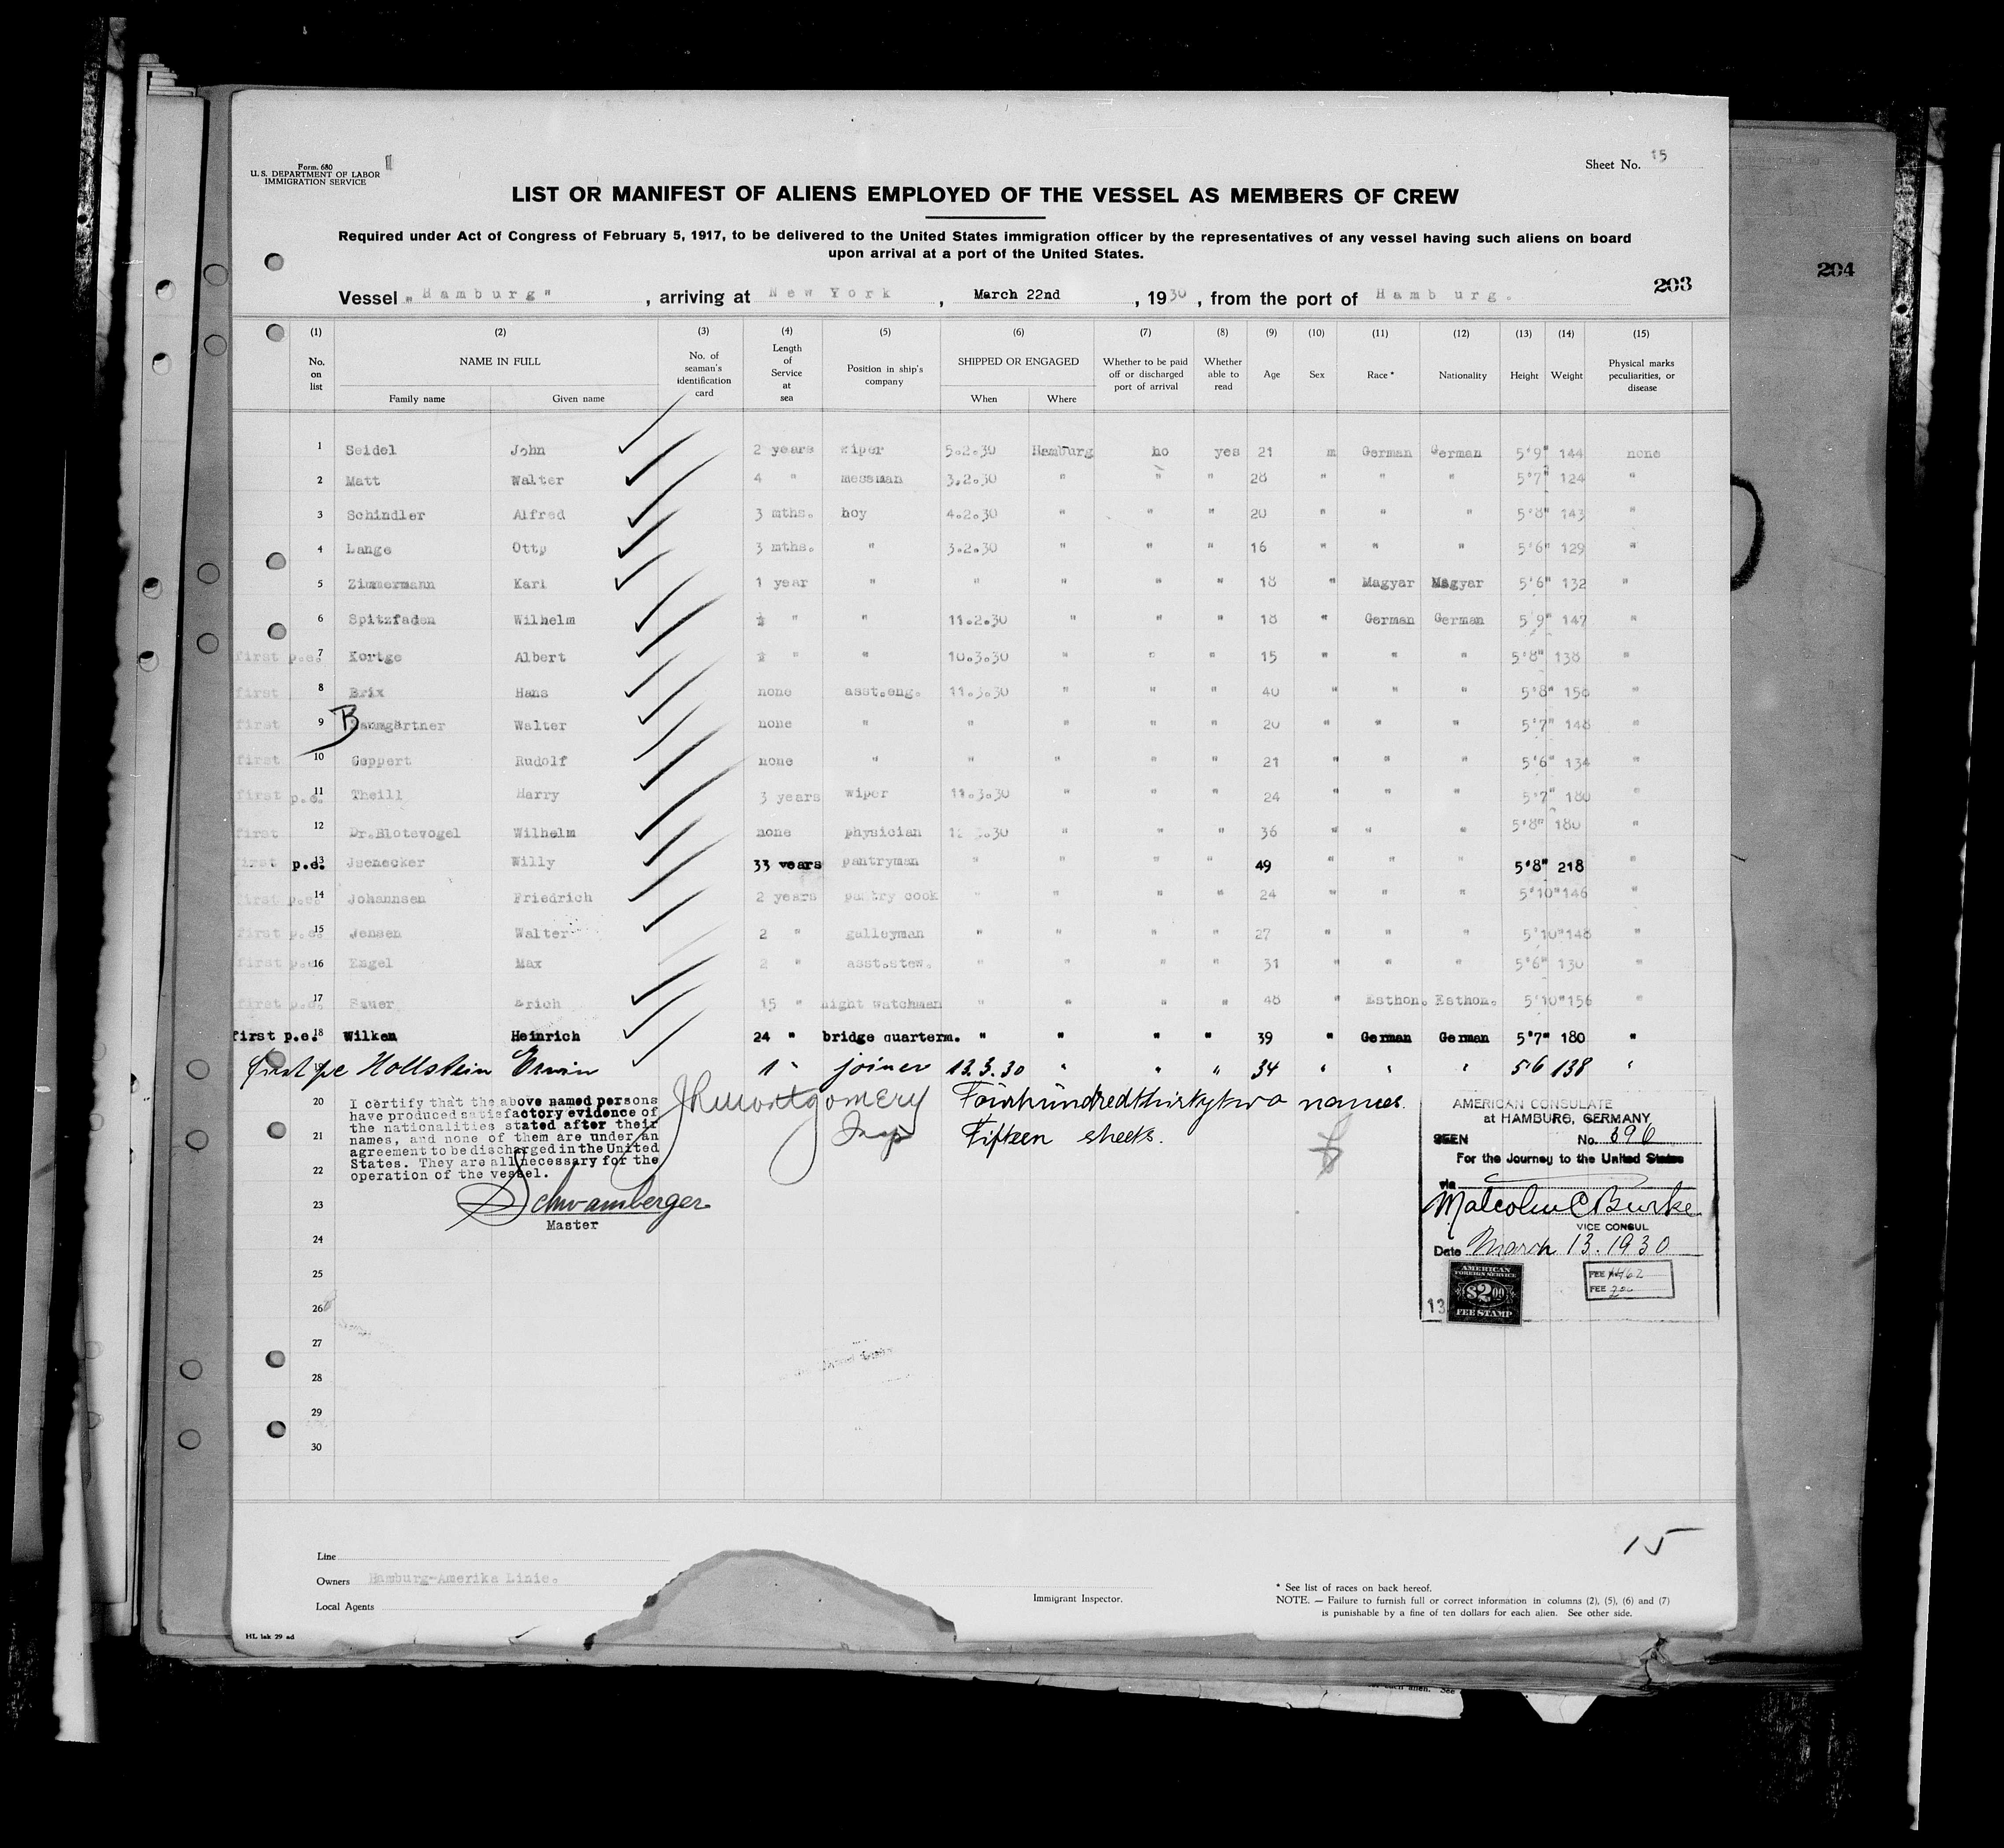 Form 680
U.S. DEPARTMENT OF LABOR
IMMIGRATION SERVICE
Sheet No. 15
LIST OR MANIFEST OF ALIENS EMPLOYED OF THE VESSEL AS MEMBERS OF CREW
Required under Act of Congress of February 5, 1917, to be delivered to the United States immigration officer by the representatives of any vessel having such aliens on board
upon arrival at a port of the United States.
203
204
Vessel „Hamburg" , arriving at New York , March 22nd , 1930 , from the port of Hamburg.
(1) (2) (3) (4) (5) (6) (7) (8) (9) (10) (11) (12) (13) (14) (15)
No. on list NAME IN FULL Family name Given name No. of seaman's identification card Length of Service at sea Position in ship's company SHIPPED OR ENGAGED When Where Whether to be paid off or discharged port of arrival Whether able to read Age Sex Race * Nationality Height Weight Physical marks peculiarities, or disease
1 Seidel John 2 years wiper 5.2.30 Hamburg no yes 21 m German German 5'9" 144 none
2 Matt Walter 4 " messman 3.2.30 " " " 28 " " " 5'7" 124 "
3 Schindler Alfred 3 mths. boy 4.2.30 " " " 20 " " " 5'8" 143 "
4 Lange Otto 3 mths. " 3.2.30 " " " 16 " " " 5'6" 129 "
5 Zimmermann Karl 1 year " " " " " 18 " Magyar Magyar 5'6" 132 "
6 Spitzfaden Wilhelm ½ " " 11.2.30 " " " 18 " German German 5'9" 147 "
first p.e. 7 Kortge Albert " " 10.3.30 " " " 15 " " " 5'8" 138 "
first 8 Brix Hans none asst.eng. 11.3.30 " " " 40 " " " 5'8" 156 "
first 9 Baumgärtner Walter none " " " " " 20 " " " 5'7" 148 "
first 10 Geppert Rudolf none " " " " " 21 " " " 5'6" 134 "
first p.e. 11 Theill Harry 3 years wiper 11.3.30 " " " 24 " " " 5'7" 180 "
first 12 Dr.Blotevogel Wilhelm none physician 12.3.30 " " " 36 " " " 5'8" 180 "
first p.e. 13 Jsenecker Willy 33 years pantryman " " " " 49 " " " 5'8" 218 "
first p.e. 14 Johannsen Friedrich 2 years pantry cook " " " " 24 " " " 5'10" 146 "
first p.e. 15 Jensen Walter 2 " galleyman " " " " 27 " " " 5'10" 148 "
first p.e. 16 Engel Max 2 " asst.stew. " " " " 31 " " " 5'6" 130 "
first p.e. 17 Sauer Erich 15 " night watchman " " " " 48 " Esthon. Esthon. 5'10" 156 "
first p.e. 18 Wilken Heinrich 24 " bridge quarterm. " " " " 39 " German German 5'7" 180 "
first pe Hollstein Erwin 1 " joiner 12.3.30 " " " 34 " " " 5'6 138 "
20
21
22
23
24
25
26
27
28
29
30
I certify that the above named persons
have produced satisfactory evidence of
the nationalities stated after their
names, and none of them are under an
agreement to be discharged in the United
States. They are all necessary for the
operation of the vessel.
Schwamberger
Master
JRMontgomery
Insp
Fourhundredthirtytwo names.
Fifteen sheets.
AMERICAN CONSULATE
at HAMBURG, GERMANY
SEEN No. 696
For the Journey to the United States
via
Malcolm C Burke
VICE CONSUL
Date March 13. 1930
AMERICAN
FOREIGN SERVICE
$2.00
FEE STAMP
13
FEE
FEE
15
Line
Owners Hamburg-Amerika Linie.
Local Agents
Immigrant Inspector.
* See list of races on back hereof.
NOTE. — Failure to furnish full or correct information in columns (2), (5), (6) and (7)
is punishable by a fine of ten dollars for each alien. See other side.
HL lak 29 ad